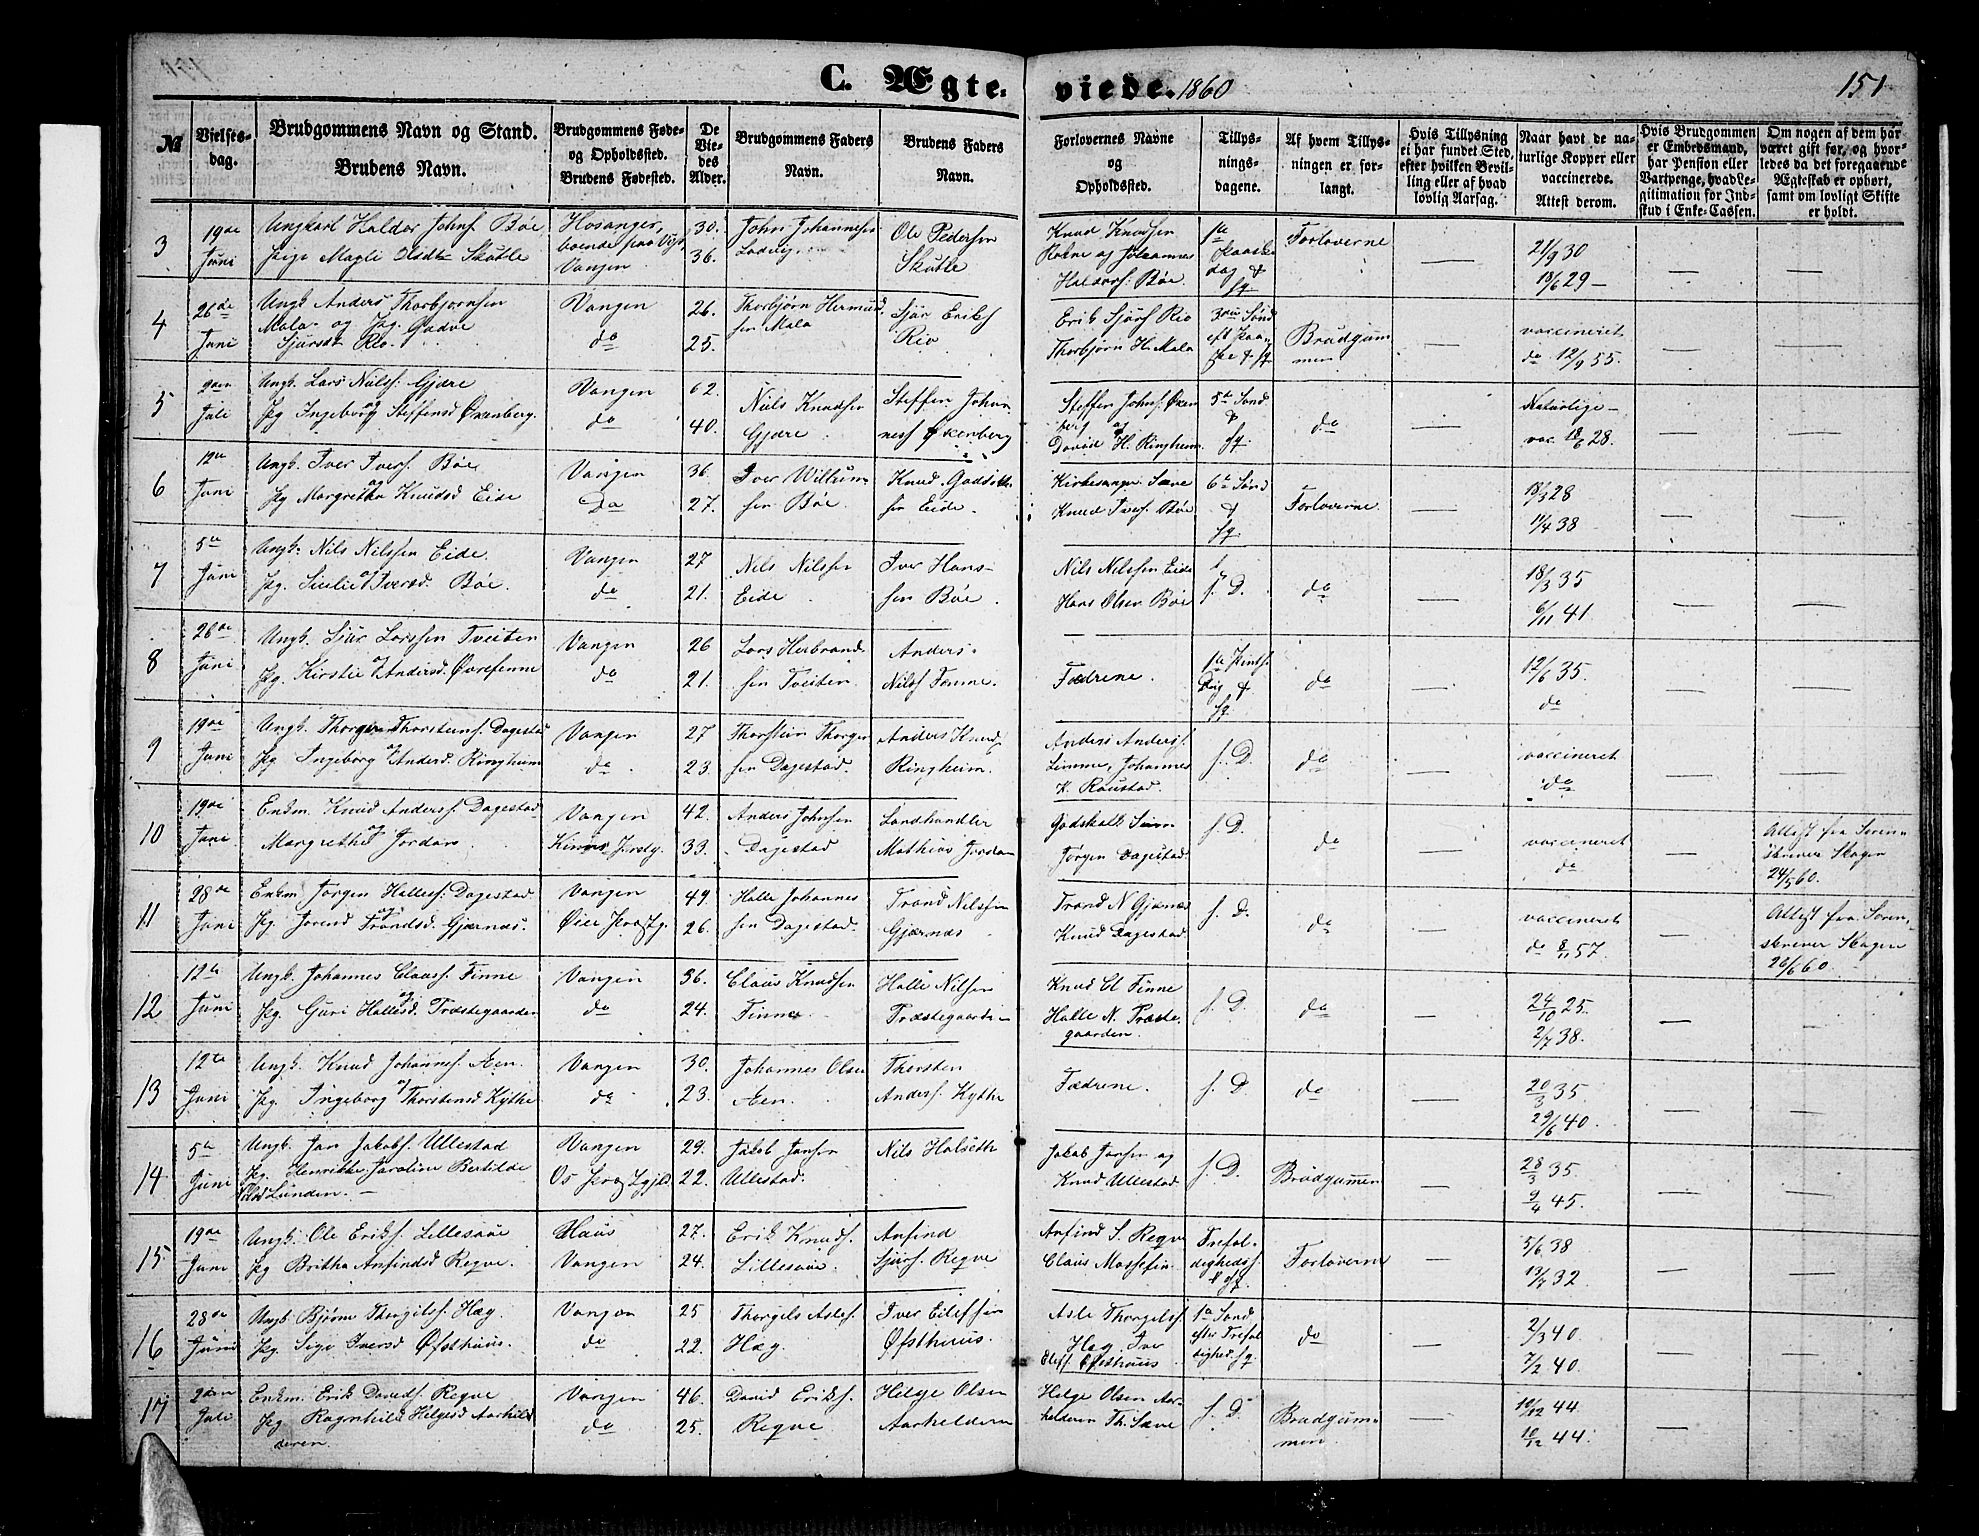 C. Ægte-
viede. 1860
151
№
Vielses-
dag.
Brudgommens Navn og Stand.
Brudens Navn.
Brudgommens Føde-
og Opholdssted.
Brudens Fødested.
De
Vie-
des
Alder.
Brudgommens Faders
Navn.
Brudens Faders
Navn.
Forlovernes Navne
og
Opholdssted.
Tillys-
nings-
dagene.
Af hvem Tillys-
ningen er for-
langt.
Hvis Tillysning
ei har fundet Sted,
efter hvilken Bevil-
ling eller af hvad
lovlig Aarsag.
Naar havt de na-
turlige Kopper eller
vaccinerede.
Attest derom.
Hvis Brudgommen
er Embedsmand,
har Pension eller
Vartpenge, hvad Le-
gitimation for Ind-
skud i Enke-Cassen.
Om nogen af dem har
været gift før, og hvor-
ledes da det foregaaende
Ægteskab er ophørt,
samt om lovligt Skifte
er holdt.
3
19de Juni
Ungkarl Haldor Johns. Bøe
Pige Magli Olsdtr Skutle
Hosanger,
boende paa
Vangen
30.
36.
John Johannesen
Ladvig
Ole Pedersen
Skutle
Knud Knudsen
Rokne og Johannes
Haldors. Bøe
1te Paaske
dag & fg.
Forloverne
21/9 30
18/6 29
4
26de Juni
Ungk. Anders Thorbjørnsen
Mala og Pg. Gudve
Sjursdtr Rio
Vangen
do
26.
25.
Thorbjørn Hermund
sen Mala
Sjur Eriks
Rio
Erik Sjurs Rio
Thorbjørn H. Mala
3die Sønd
eft Paa-
ske & fg
Brudgum
men
vaccineret
do 12/9 55.
5
9den Juli
Ungk. Lars Nils. Gjære
Pg Ingeborg Steffensd Øxenberg.
Vangen
do
62.
40.
Niels Knudsen
Gjære
Steffen Johan
ness Øxenberg
Steffen Johns. Øxen
berg og
David H. Ringheim
5te Sønd.
& fg.
do
Naturlige
vac. 18/6 28.
6
12te Juni
Ungk. Iver Ivers. Bøe
Pg Margretha Knudsd Eide
Vangen
Do
36.
27.
Iver Willum-
sen Bøe.
Knud Godskalk
sen Eide.
Kirkesanger Sæve
Knud Ivers. Bøe
6te Sønd
& fg
Forloverne
18/3 28
11/4 38
7
5te Juni
Ungk. Nils Nilssen Eide.
Pg. Sicilie Iversd. Bøe.
Vangen
do
27
21.
Nils Nilssen
Eide
Iver Hans-
sen Bøe
Nils Nilssen Eide
Hans Olsen Bøe
f. D.
do
18/3 35
6/11 41
8
26de Juni
Ungk. Sjur Larssen Tveiten
Pg. Kirstie Andersd. Øvrefenne
Vangen
do
26
21.
Lars Herbrand
sen Tveiten
Anders
Nilss Fenne.
Fædrene.
1te Pintse
Dag &
fg.
do
12/6 35.
do
9
19de Juni
Ungk. Thorger Thorsteins. Dagestad
Pg Ingeborg Andersd. Ringheim
Vangen
do
27
23.
Thorstein Thorger
sen Dagestad.
Anders Knud
Ringheim.
Anders Anders.
Limme, Johannes
K. Raustad.
f. D
do
vaccineret
do
10
19de Juni
Enkm. Knud Anderss. Dagestad
Margrethe Jordan
Vangen
42.
33.
Anders Johnsen
Dagestad
Landhandler
Mathias Jordan
Godskalk
Jørgen Dagestad
f. D.
do
vaccineret
do
Attest fra Soren-
skriver Skagen
24/5 60.
11
28de Juni
Enkm Jørgen Halless. Dagestad
Pg. Jorend Trondsd. Gjærnæs.
Vangen
49.
26.
Halle Johannes
sen Dagestad.
Trond Nilssen
Gjærnæs
Trond N Gjærnæs
Knud Dagestad
f. D.
do
vaccineret
do 8/11 57.
Attest fra Soren-
skriver Skagen
26/6 60.
12
12te Juni
Ungk. Johannes Claass. Finne
Pg. Guri Hallesd. Træstegaarden
Vangen
do
36.
24.
Claus Knudsen
Finne
Halle Nilsen
Træstegaarden
Knud Cl Finne
Halle N. Træste-
gaarden
f. D
do
24/10 25.
2/7 38.
13
12te Juni
Ungk. Knud Johannes. Aen.
Pg. Ingeborg Thorstensd Kythe
Vangen
do
30.
23.
Johannes Olsen
Aen.
Thorsten
Anders. Kythe
Fædrene.
f. D
do
20/3 35
29/6 40.
14
5te Juni
Ungk. Jan Jakobs. Ullestad
Pg. Henrikke Caroline Bertilde
Nilsd Lunden.
Vangen
29.
22.
Jakob Jansen
Ullestad.
Nils Halseth
Jakob Jansen og
Knud Ullestad
f. D.
Brudgummen
28/3 35.
9/4 45.
15
19de Juni
Ungk. Ole Eriks. Lillesaae
Pg Britha Anfindsd Reqve.
Haus
Vangen
27.
24.
Erik Knuds.
Lillesaae
Anfind
Sjurs. Reqve
Anfind S. Reqve
Claus Massefin
Trefol-
digheds
& fg.
Forloverne
5/6 38
13/7 32
16
28de Juni
Ungk Bjørne Thorgils. Hæg
Pg. Sigr Iversd Øfsthuus.
Vangen
do
25
22.
Thorgils Asles.
Hæg.
Iver Eilefsen
Øfsthuus.
Asle Thorgils.
Hæg. Iver
Elefs Øfsthuus
1te Sønd
efter Trefol
dighed. fg
do
2/3 40.
7/2 40.
17
9den Juli
Enkm. Erik Davids. Reqve
Pg Ragnhild Helgesd Aarhild
deren
Vangen
do
46.
25.
David Eriks.
Reqve
Helge Olsen
Aarhelderen
Helge Olsen Aar-
helderen Th. Sæve
f. D.
Brudgum-
men
10/12 44.
10/12 44.